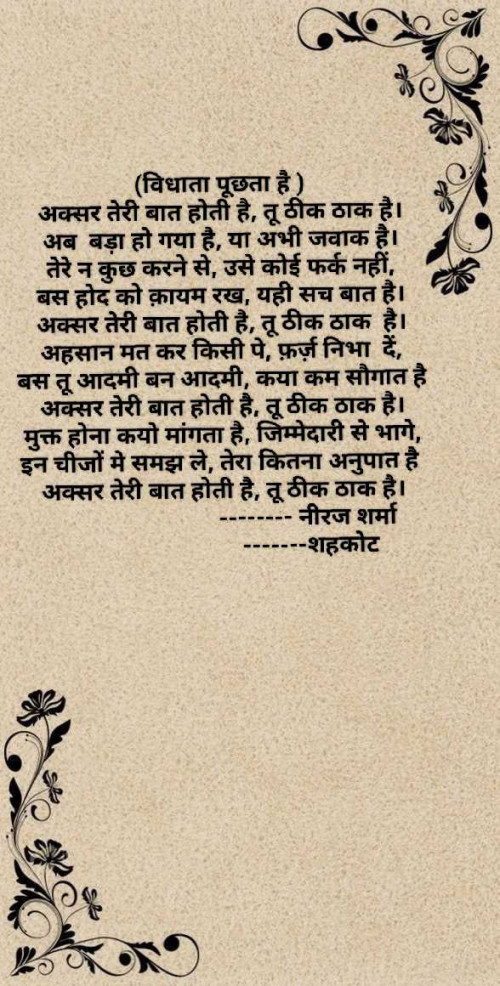 (विधाता पूछता है )
अक्सर तेरी बात होती है, तू ठीक ठाक है।
अब बड़ा हो गया है, या अभी जवाक है।
तेरे न कुछ करने से, उसे कोई फर्क नहीं,
बस होद को क़ायम रख, यही सच बात है।
अक्सर तेरी बात होती है, तू ठीक ठाक है।
अहसान मत कर किसी पे, फ़र्ज़ निभा दें,
बस तू आदमी बन आदमी, कया कम सौगात है
अक्सर तेरी बात होती है, तू ठीक ठाक है।
मुक्त होना कयो मांगता है, जिम्मेदारी से भागे,
इन चीजों मे समझ ले, तेरा कितना अनुपात है
अक्सर तेरी बात होती है, तू ठीक ठाक है।
-------- नीरज शर्मा
-------शहकोट